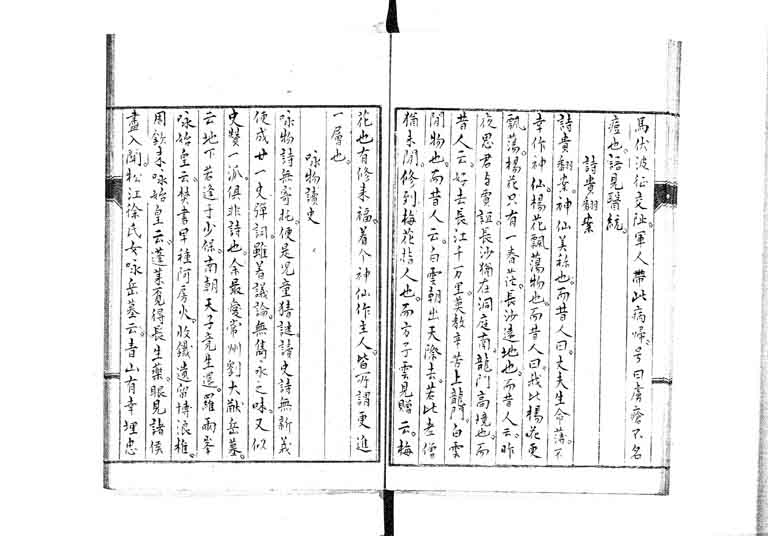 馬伏波征交趾軍人帶此病歸。号曰虜瘡不名
痘也。語見醫統。
詩貴翻案
詩貴翻案神仙美称也。而昔人曰。丈夫生命薄。不
幸作神仙。楊花飄蕩物也。而昔人曰。我比楊花更
飄蕩。楊花只有一春茫。長沙遠地也。而昔人云。昨
夜思君与賈誼。長沙猶在洞庭南。龍門高境也。而
昔人云。好去長江千万里。莫教辛苦上龍門。白雲
閒物也。而昔人云。白雲朝出天際去。若比老僧
猶未閒。修到梅花指人也。而方子雲見贈云。梅
花也有修来福。着个神仙作主人。皆所謂更進
一層也。
咏物讀史
咏物詩無寄托。便是児童猜謎。讀史詩無新義
便成廿一史彈詞。雖着議論。無雋永之味。又似
史賛一派。俱非詩也。余最愛常州劉大猷岳墓。
云地下若逢于少保。南朝天子竟生還。羅兩峯
咏始皇云。焚書早種阿房火。收鐵還留博浪椎。
周欽来咏始皇云。蓬莱覓得長生藥。眼見諸侯
盡入関。松江徐氏女咏岳墓云。青山有幸埋忠